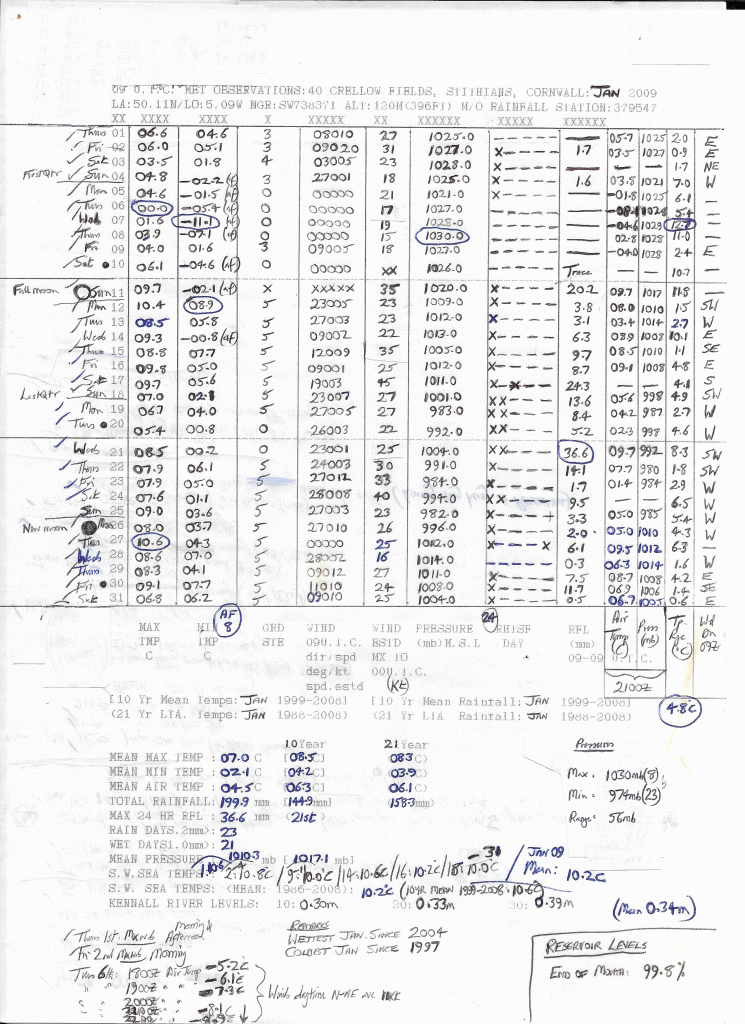 09 U.T.C. MET OBSERVATIONS:40 CRELLOW FIELDS, STITHIANS, CORNWALL: JAN 2009
LA:50.11N/LO:5.09W NGR:SW738371 ALT:120M(396FT) M/O RAINFALL STATION:379547
XX XXXX XXXX X XXXXX XX XXXXXX XXXXX XXXXXX
Thurs 01 06.6 04.6 3 08010 27 1025.0 ------ — 05.7 1025 2.0 E
Fri 02 06.0 05.1 3 09020 31 1027.0 X----- 1.7 03.5 1027 0.9 E
Sat 03 03.5 01.8 4 03005 23 1028.0 — — — 1.7 NE
First Qtr Sun 04 04.8 -02.2 (af) 3 27001 18 1025.0 X----- 1.6 03.8 1021 7.0 W
Mon 05 04.6 -01.5 (af) 0 00000 21 1021.0 — -01.8 1025 6.1 —
Tues 06 00.0 -05.4 (af) 0 00000 17 1027.0 — 1028 5.4 —
Wed 07 01.6 -11.1 (af) 0 00000 19 1028.0 — -04.6 1029 12.7
Thurs 08 03.9 -07.1 (af) 0 00000 15 1030.0 — 02.8 1028 11.0 —
Fri 09 04.0 01.6 3 09005 18 1027.0 — -04.0 1028 2.4 E
Sat 10 06.1 -04.6 (af) 0 00000 xx 1026.0 Trace — 10.7 —
Full moon Sun 11 09.7 -02.1 (af) X XXXXX 35 1020.0 X----- 20.2 09.7 1017 11.8 —
Mon 12 10.4 08.9 5 23005 23 1009.0 X----- 3.8 08.0 1010 1.5 SW
Tues 13 08.5 05.8 5 27003 23 1012.0 X----- 3.1 03.4 1014 2.7 W
Wed 14 09.3 -00.8 (af) 5 09002 22 1013.0 X----- 6.3 08.9 1008 10.1 E
Thurs 15 08.8 07.7 5 12009 35 1005.0 X----- 9.7 08.5 1010 1.1 SE
Fri 16 09.8 05.0 5 09001 25 1012.0 X----- 8.7 09.1 1008 4.8 E
Sat 17 09.7 05.6 5 19003 45 1011.0 24.3 — 4.1 S
Last Qtr Sun 18 07.0 02.1 5 23007 27 1001.0 XX---- 13.6 05.6 998 4.9 SW
Mon 19 06.7 04.0 0 27005 27 983.0 XX---- 8.4 04.2 987 2.7 W
Tues 20 05.4 00.8 0 26003 22 992.0 X----- 5.2 02.3 998 4.6 W
Weds 21 08.5 00.2 0 23001 25 1004.0 XX---- 36.6 09.7 992 8.3 SW
Thurs 22 07.9 06.1 5 24003 30 991.0 X----- 14.1 07.7 980 1.8 SW
Fri 23 07.9 05.0 5 27012 33 984.0 X----- 1.7 01.4 984 2.9 W
Sat 24 07.6 01.1 5 28008 40 994.0 X----- 9.5 — 6.5 W
Sun 25 09.0 03.6 5 27003 23 982.0 X----- 3.3 05.0 985 5.4 W
New moon Mon 26 08.0 03.7 5 27010 26 996.0 X----- 2.0 05.0 1010 4.3 W
Tues 27 10.6 04.3 5 00000 25 1012.0 X----X 6.1 09.5 1012 6.3 —
Weds 28 08.6 07.0 5 28002 16 1014.0 ------ 0.3 06.3 1014 1.6 W
Thurs 29 08.3 04.1 5 09012 27 1011.0 X----- 7.5 08.7 1008 4.2 E
Fri 30 09.1 07.7 5 11010 24 1008.0 X----- 11.7 06.9 1006 1.4 SE
Sat 31 06.8 06.2 5 09010 25 1004.0 X----- 0.5 06.7 1005 0.6 E
AF 8 24
MAX MIN GRD WIND WIND PRESSURE RHISF RFL Air Press Tp. Wd
TMP TMP STE 09U.T.C. ESTD (mb)M.S.L DAY (mm) Temp (mb) Rge Dn
C C dir/spd MX 10 09-09 U.T.C. (C) (°C) 09Z
deg/kt 00U.T.C.
spd.estd (Kt) 2100Z
[10 Yr Mean Temps: JAN 1999-2008] [10 Yr Mean Rainfall: JAN 1999-2008]
(21 Yr LTA. Temps: JAN 1988-2008) (21 Yr LTA Rainfall: JAN 1988-2008) 4.8C
10 Year 21 Year Pressure
MEAN MAX TEMP : 07.0 C [08.5C] (08.3C)
MEAN MIN TEMP : 02.1 C [04.2C] (03.9C) Max. 1030mb (8)
MEAN AIR TEMP : 04.5 C [06.3C] (06.1C) Min. 974mb (23)
TOTAL RAINFALL: 199.9 mm [144.9mm] (158.3mm) Range: 56mb
MAX 24 HR RFL : 36.6 mm (21st)
RAIN DAYS.2mm): 23
WET DAYS1.0mm): 21
MEAN PRESSURE 1010.3 mb [1017.1 mb]
S.W. SEA TEMPS: 2:10.8C / 9:10.0C / 14:10.6C / 16:10.2C / 18:10.0C - 31 / JAN 09 Mean: 10.2C
S.W. SEA TEMPS: (MEAN: 1986-2008): 10.2C (10YR MEAN 1999-2008: 10.6C)
KENNALL RIVER LEVELS: 10: 0.30m 20: 0.33m 30: 0.39m (Mean 0.34m)
Thurs 1st Morning & Afternoon
Fri 2nd Morning
REMARKS
WETTEST JAN. SINCE 2004
COLDEST JAN SINCE 1997
RESERVOIR LEVELS
END OF MONTH: 99.8%
Tues 6th: 1800Z Air Temp -5.2C
" " 1900Z " " -6.1C
" " 2000Z " " -7.3C
-8.1C